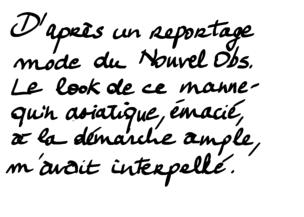 D'après un reportage
mode du Nouvel Obs.
Le look de ce manne-
quin asiatique, émacié,
à la démarche ample,
m'avait interpellé.